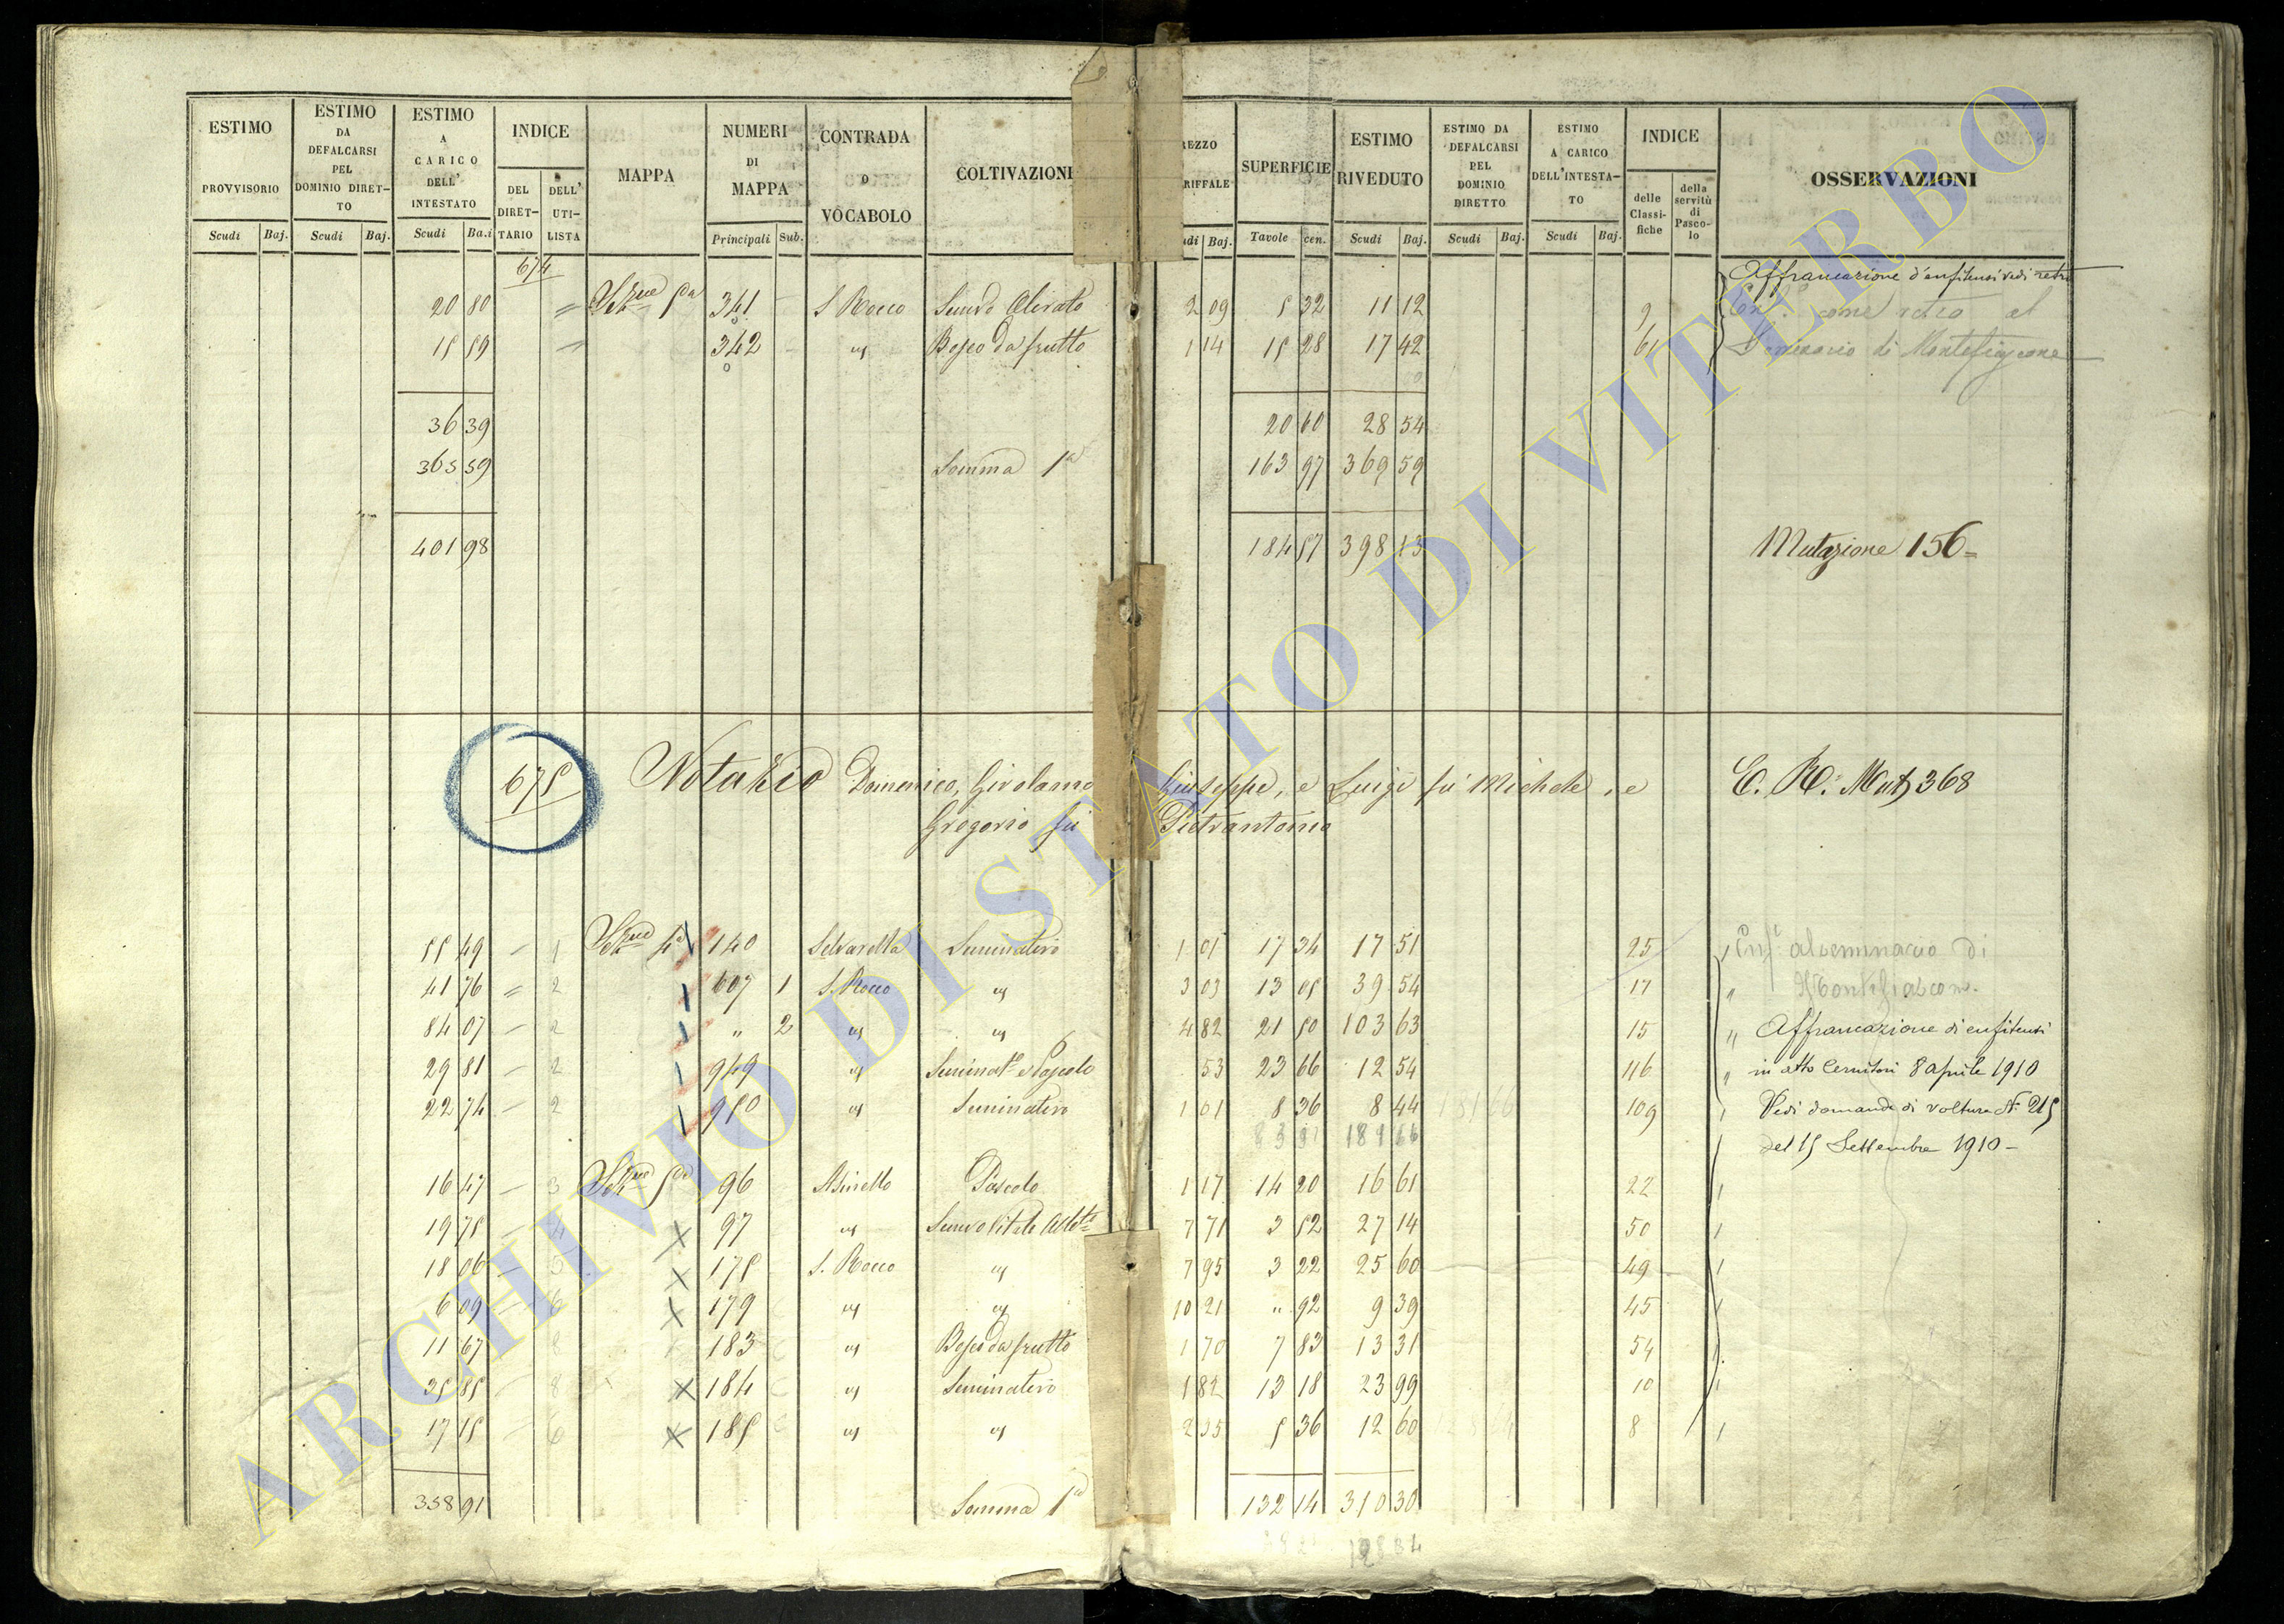 ESTIMO PROVVISORIO | ESTIMO DA DEFALCARSI PEL DOMINIO DIRET-TO | ESTIMO A CARICO DELL' INTESTATO | INDICE | MAPPA | NUMERI DI MAPPA | CONTRADA O VOCABOLO | COLTIVAZIONI | REZZO RIFFALE | SUPERFICIE | ESTIMO RIVEDUTO | ESTIMO DA DEFALCARSI PEL DOMINIO DIRETTO | ESTIMO A CARICO DELL'INTESTA-TO | INDICE | OSSERVAZIONI
Scudi | Baj. | Scudi | Baj. | Scudi | Ba.i | DEL DIRET-TARIO | DELL' UTI-LISTA | Principali | Sub. | udi | Baj. | Tavole | cen. | Scudi | Baj. | Scudi | Baj. | Scudi | Baj. | delle Classi-fiche | della servitù di Pasco-lo
674
Affrancazione d'enfiteusi vedi retro
20 80 = Sez.ne 5a 341 S Rocco Semvo Olivato 2 09 5 32 11 12 9 come retro al
15 59 = 342 " Bosco da frutto 1 14 15 28 17 42 61 di Montefiascone
36 39 20 60 28 54
365 59 Somma 1a 163 97 369 59
401 98 184 57 398 13 Mutazione 156=
675 Notazio Domenico, Girolamo Giuseppe, e Luigi fu Michele, e C. R. Mut 368
Gregorio fu Pietrantonio
55 49 - 1 Sez.ne 4a 140 Selvarella Seminativo 1 01 17 34 17 51 25 Enf. al seminario di
41 76 = 2 607 1 S. Rocco " 3 03 13 05 39 54 17 " Montefiascone.
84 07 - 2 " 2 " " 4 82 21 50 103 63 15 " Affrancazione di enfiteusi
29 81 - 2 949 " Seminat.o e Pascolo 53 23 66 12 54 116 " in atto Cernitori 8 aprile 1910
22 74 - 2 950 " Seminativo 1 01 8 36 8 44 109 Vedi domanda di voltura N. 215
181 66
del 15 Settembre 1910 -
16 47 - 3 Sez.ne 5a 96 Asinello Pascolo 1 17 14 20 16 61 22
19 75 - 4 X 97 " 7 71 3 52 27 14 50
18 06 - 5 X 175 S. Rocco " 7 95 3 22 25 60 49
6 09 - 6 X 179 " " 10 21 " 92 9 39 45
11 67 8 183 " Bosco da frutto 1 70 7 83 13 31 54
35 85 - 8 X 184 " Seminativo 1 82 13 18 23 99 10
17 15 - 6 X 185 " " 2 35 5 36 12 60 8
358 91 Somma 1a 132 14 310 30
128 34
ARCHIVIO DI STATO DI VITERBO